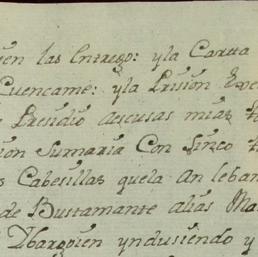 ien las Entrego: y la Carta
Cuencame: y la Prision
Presidio aescusas mias
ion Sumaria Con Sinco
Cabesillas quela An leban
de Bustamante alias Ma
Ybarguien yndusiendo y